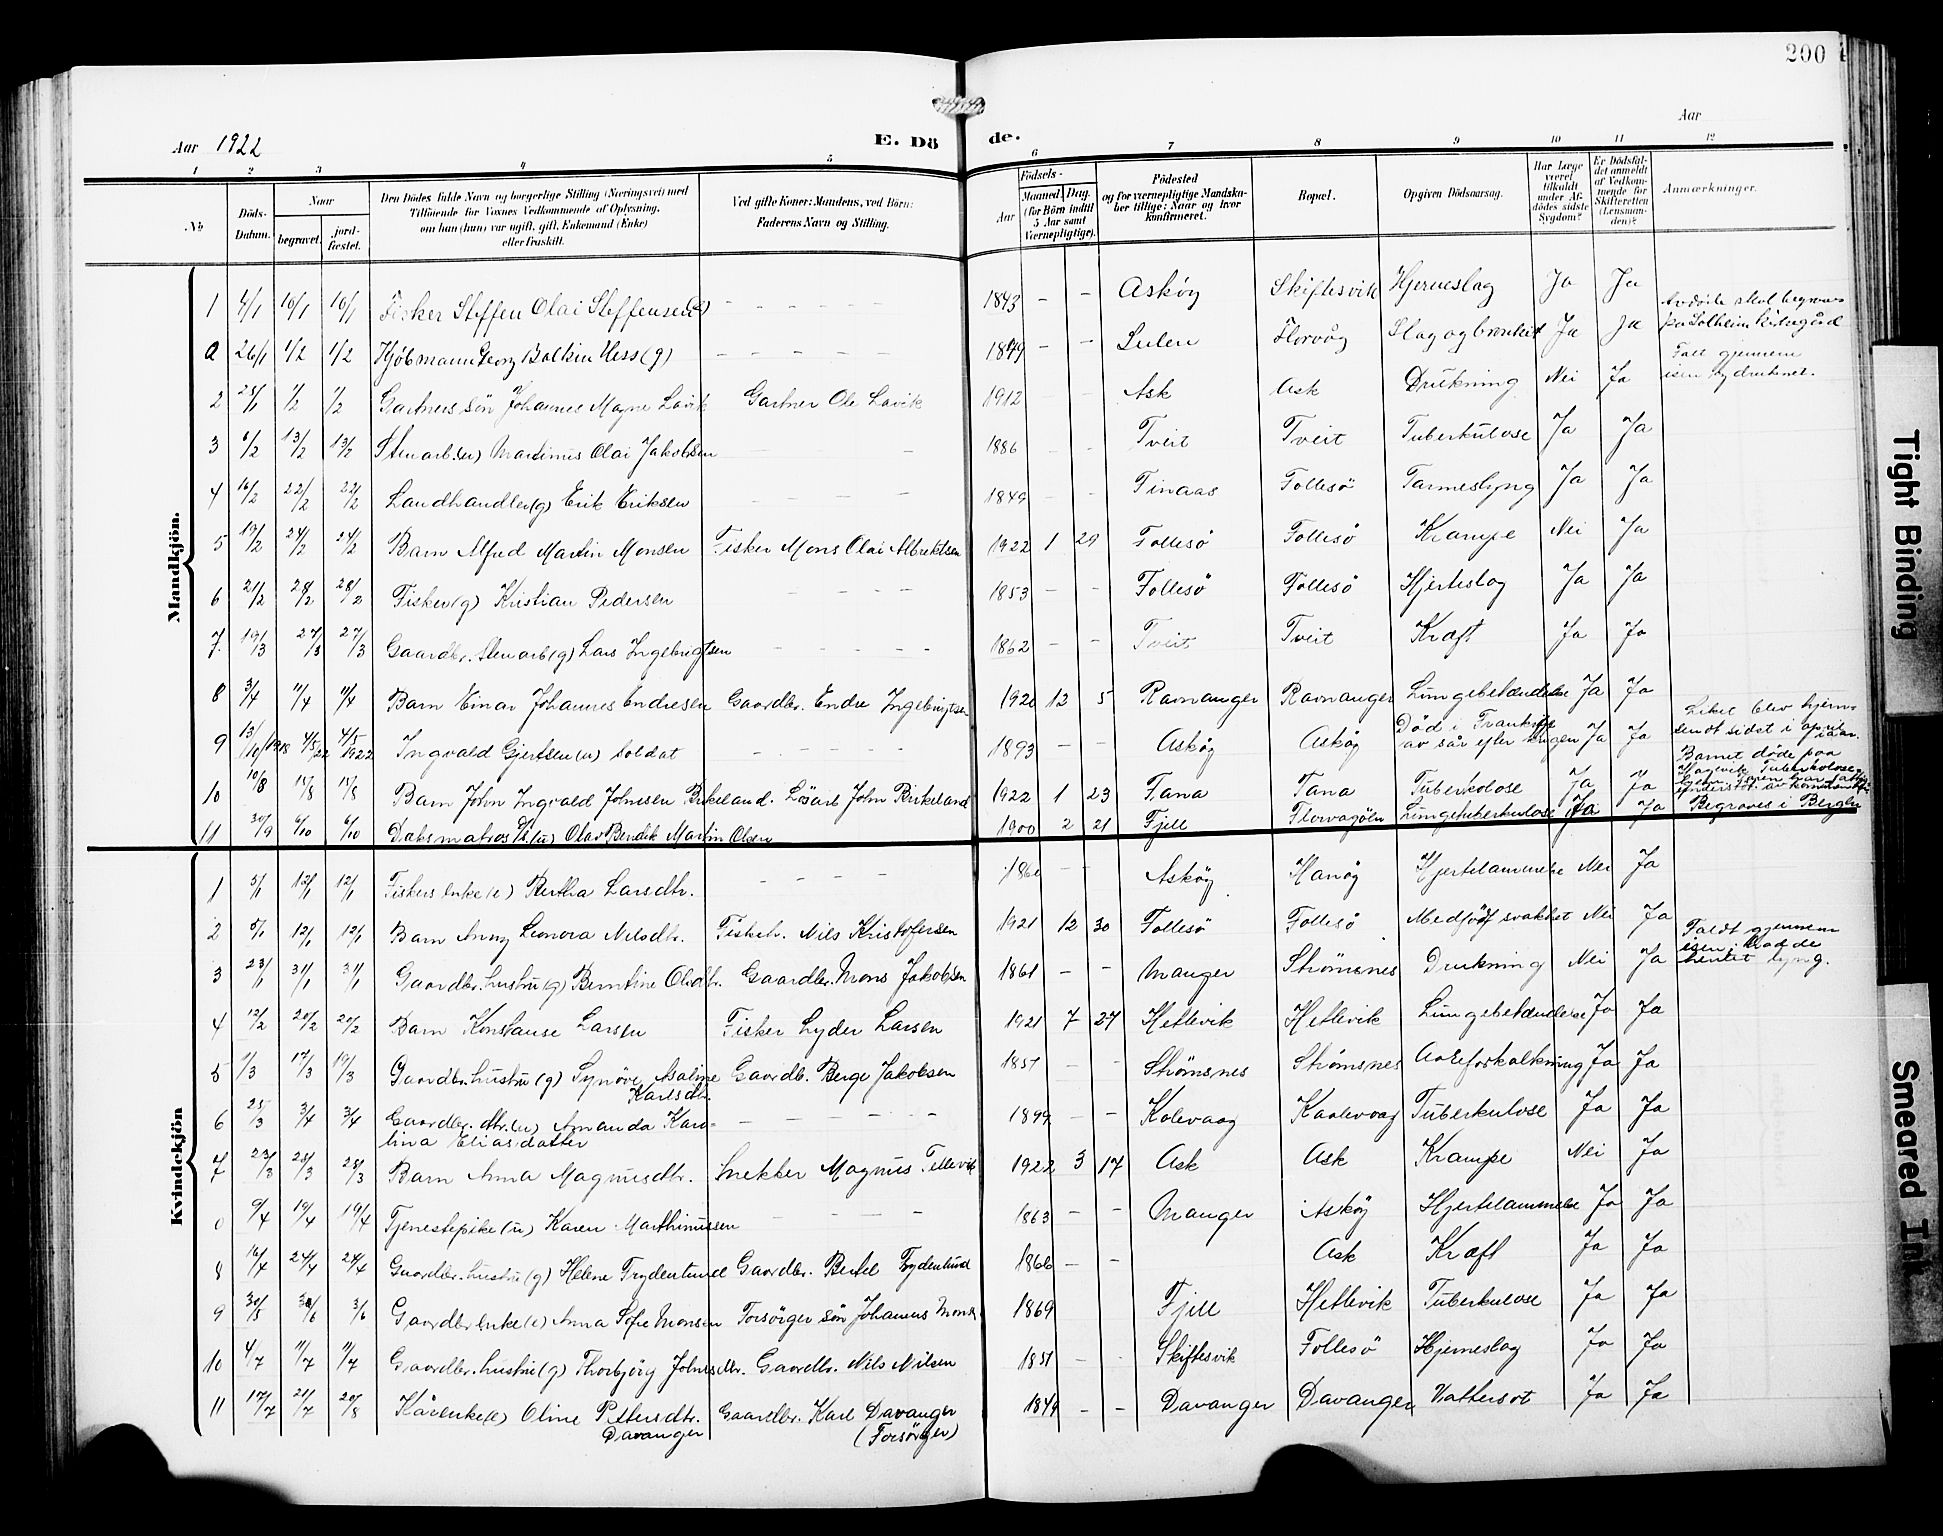 200
Aar 1922
E. Dö
de.
Aar
1 2 3 4 5 6 7 8 9 10 11 12
No
Döds-Datum.
Naar
begravet.
jord-fæstet.
Den Dödes fulde Navn og borgerlige Stilling (Næringsvei) med
Tilföiende for Voxnes Vedkommende af Oplysning,
om han (hun) var ugift, gift, Enkemand (Enke)
eller fraskilt.
Ved gifte Koner: Mandens, ved Börn:
Faderens Navn og Stilling.
Födsels-
Aar
Maaned. Dag.
(for Börn indtil 5 Aar samt Værnepligtige).
Födested
og for værnepligtige Mandskaber tillige: Naar og hvor konfirmeret.
Bopæl.
Opgiven Dödsaarsag.
Har Læge været tilkaldt under Afdödes sidste Sygdom?
Er Dödsfaldet anmeldt af Vedkommende for Skifteretten (Lensmanden)?
Anmærkninger.
Mandkjön.
1 4/1 10/1 10/1 Fisker Steffen Olai Steffensen - - - - - 1843 - - Askøy Skiftesvik Hjerneslag Ja Ja
a 26/1 1/2 1/2 Kjøbmann Georg Balkin Hess (g) - - - - - 1849 - - Sulen Florvåg Slag og bronkeit Ja Ja skal begraves paa Solheim Kirkegård
2 28/1 1/2 1/2 Gartners søn Johannes Magne Lavik Gartner Ole Lavik 1912 Ask Ask Drukning Nei Ja Fall gjennem isen og druknet.
3 6/2 13/2 13/2 Stenarb. (u) Martinus Olai Jakobsen 1886 Tveit Tveit Tuberkulose Ja Ja
4 16/2 22/2 22/2 Landhandler (g) Erik Eriksen 1849 Finaas Follesø Tarmeslyng Ja Ja
5 19/2 24/2 24/2 Barn Alfred Martin Monsen Fisker Mons Olai Albrektsen 1922 1 29 Follesø Follesø Krampe Nei Ja
6 21/2 28/2 28/2 Fisker (g) Kristian Pedersen - - - - 1853 - - Follesø Follesø Hjerteslag Ja Ja
7 19/3 27/3 27/3 Gaardbr. Stenarb (g) Lars Ingebrigtsen - - - - 1862 - - Tveit Tveit Kræft Ja Ja
8 3/4 11/4 11/4 Barn Einar Johannes Endresen Gaardbr. Endre Ingebrigtsen 1920 12 5 Ravnanger Ravnanger Lungebetændelse Ja Ja
9 13/10/1918 4/5 22 4/5 1922 Ingvald Gjertsen (u) soldat - - - - 1893 - - Askøy Askøy Død i Frankrige av sår efter krigen Ja Ja Liket blev hjemsendt sidst i april iaar.
10 10/8 15/8 15/8 Barn John Ingvald Johnsen Birkeland. Løsarb John Birkeland 1922 1 23 Fana Fana Tuberkolose Ja Ja Barnet døde paa
11 30/9 6/10 6/10 Daksmatros (u) Olav Bendik Martin Olsen 1900 2 21 Fjell Florvagøen Lungetuberkulose Ja Ja Begraves i Bergen
Kvindekjön
1 5/1 12/1 12/1 Fiskers enke (e) Bertha Larsdtr. - - - - - - Askøy Hanøy Hjertelammelse Nei Ja
2 5/1 12/1 12/1 Barn Anny Leonora Nilsdtr. Fiskeb. Nils Kristofersen 1921 12 30 Follesø Follesø Medfødt svakhet Nei Ja
3 23/1 31/1 31/1 Gaardbr. hustru (g) Berntine Olsdtr. Gaardbr. Mons Jakobsen 1861 - - Manger Strømsnes Drukning Nei Ja Faldt gjennem isen; hadde hentet lyng.
4 12/2 20/2 20/2 Barn Konstanse Larsen Fisker Lyder Larsen 1921 7 27 Hetlevik Hetlevik Lungebetændelse Ja Ja
5 11/3 17/3 19/3 Gaardbr. hustru (g) Synøve Asaline Karlsdtr. Gaardb. Berge Jakobsen 1851 - - Strømsnes Strømsnes Aareforkalkning Ja Ja
6 25/3 3/4 3/4 Gaardbr. dtr. (u) Amanda Karolina Eliasdatter - - - - - 1899 - - Kolevaag Kaalevaag Tuberkulose Ja Ja
7 23/3 28/3 28/3 Barn Anna Magnusdtr. Snekker Magnus Tellevik 1922 3 17 Ask Ask Krampe Nei Ja
0 9/4 19/4 19/4 Tjenestepike (u) Karen Marthinussen - - - - 1863 - - Manger Askøy Hjertelammelse Ja Ja
8 16/4 24/4 24/4 Gaardbr. hustru (g) Helene Frydenlund Gaardbr. Bertel Frydenlund 1866 - - Ask Kræft Ja Ja
9 30/5 3/6 3/6 Gaardbr enke (e) Anna Sofie Monsen Forsørger søn Johannes Mons 1869 Fjell Hetlevik Tuberkulose Ja Ja
10 4/7 11/7 11/7 Gaardbr. hustru (g) Thorbjørg Johnsdtr. Gaardbr. Nils Nilsen 1851 - - Skiftesvik Follesø Hjerneslag Ja Ja
11 17/7 21/7 20/8 Kårenke (e) Oline Pettersdtr. Davanger Gaardbr. Karl Davanger (Forsørger) 1849 - - Davanger Davanger Vattersot Ja Ja
Tight Binding
Smeared Ink